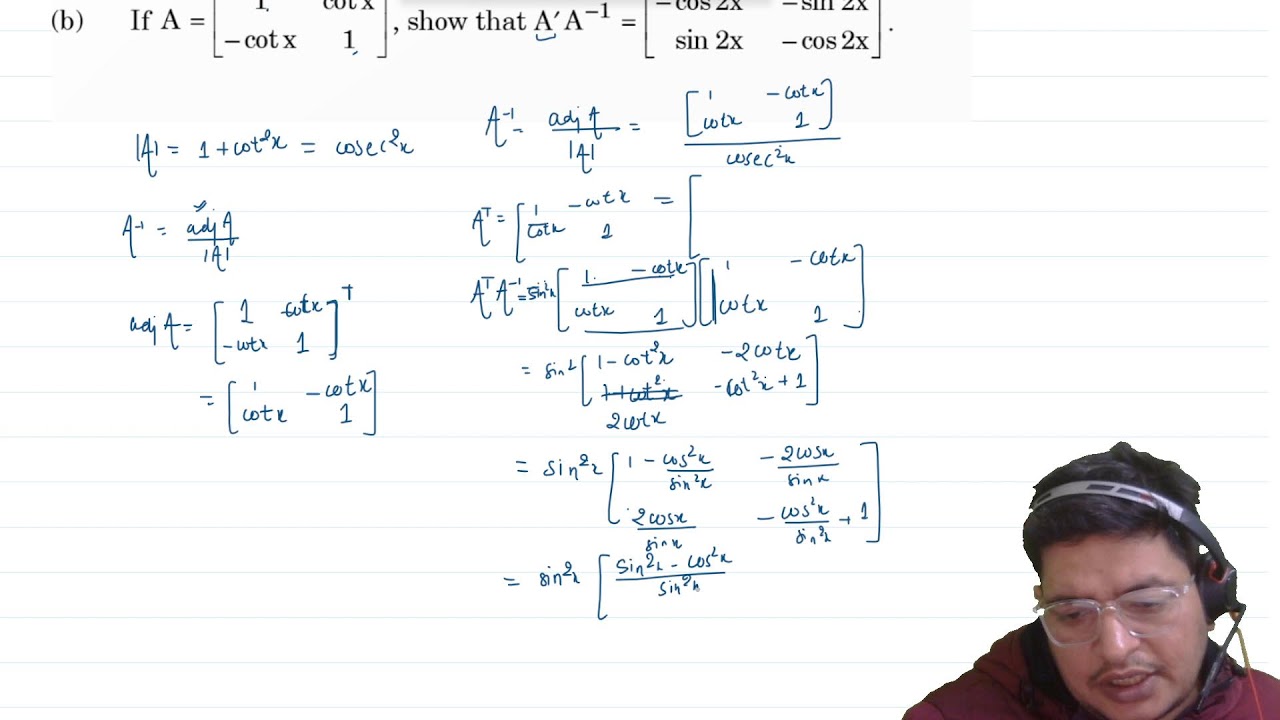 (b) If A = [1 cot x
-cot x 1], show that A′A⁻¹ = [-cos 2x -sin 2x
sin 2x -cos 2x].
|A| = 1 + cot²x = cosec²x
A⁻¹ = adj A / |A|
adj A = [1 cotx
-cotx 1]ᵀ
= [1 -cotx
cotx 1]
A⁻¹ = adj A / |A| = [1 -cotx
cotx 1] / cosec²x
Aᵀ = [1 -cotx
cotx 1] = [
AᵀA⁻¹ = sin²x [1 -cotx
cotx 1] [1 -cotx
cotx 1]
= sin² [1 - cot²x -2cotx
1+cot²x -cot²x + 1]
2cotx
= sin²x [1 - cos²x/sin²x -2cosx/sinx
2cosx/sinx -cos²x/sin²x + 1]
= sin²x [sin²x - cos²x / sin²x